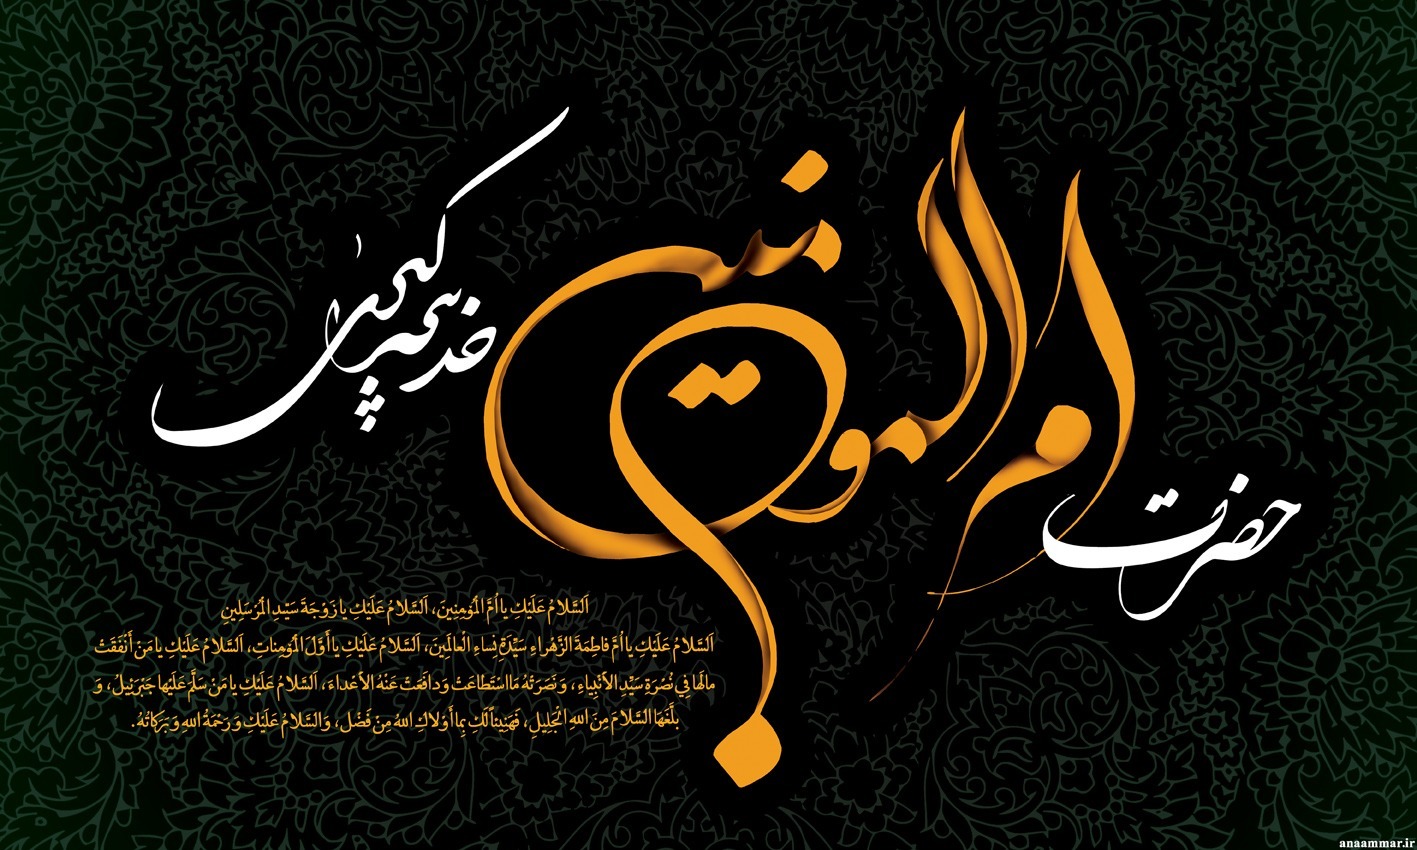 حضرت
ام المومنین
خدیجه کبری
اَلسَّلامُ عَلَيْكِ يا اُمَّ الْمُؤمِنِينَ، اَلسَّلامُ عَلَيْكِ يا زَوْجَةَ سَيِّدِ الْمُرْسَلِينِ
اَلسَّلامُ عَلَيْكِ يا اُمَّ فاطِمَةَ الزَّهْراءِ سَيِّدَةِ نِساءِ الْعالَمِينَ، اَلسَّلامُ عَلَيْكِ يا أَوَّلَ الْمُؤمِناتِ، اَلسَّلامُ عَلَيْكِ يا مَنْ أَنْفَقَتْ
مالَها فِي نُصْرَةِ سَيِّدِ الأَنْبِياءِ، وَ نَصَرَتْهُ مَا اسْتَطاعَتْ وَ دافَعَتْ عَنْهُ الأَعْداءَ، اَلسَّلامُ عَلَيْكِ يا مَنْ سَلَّمَ عَلَيْها جَبْرَئِيلُ، وَ
بَلَّغَهَا السَّلامَ مِنَ اللهِ الْجَلِيلِ، فَهَنِيئاً لَكِ بِما أَوْلاكِ اللهُ مِنْ فَضْل، وَالسَّلامُ عَلَيْكِ وَ رَحْمَةُ اللهِ وَ بَرَكاتُهُ.
anaammar.ir